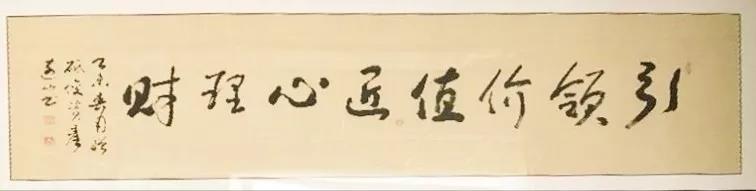 引领价值匠心理财
乙未